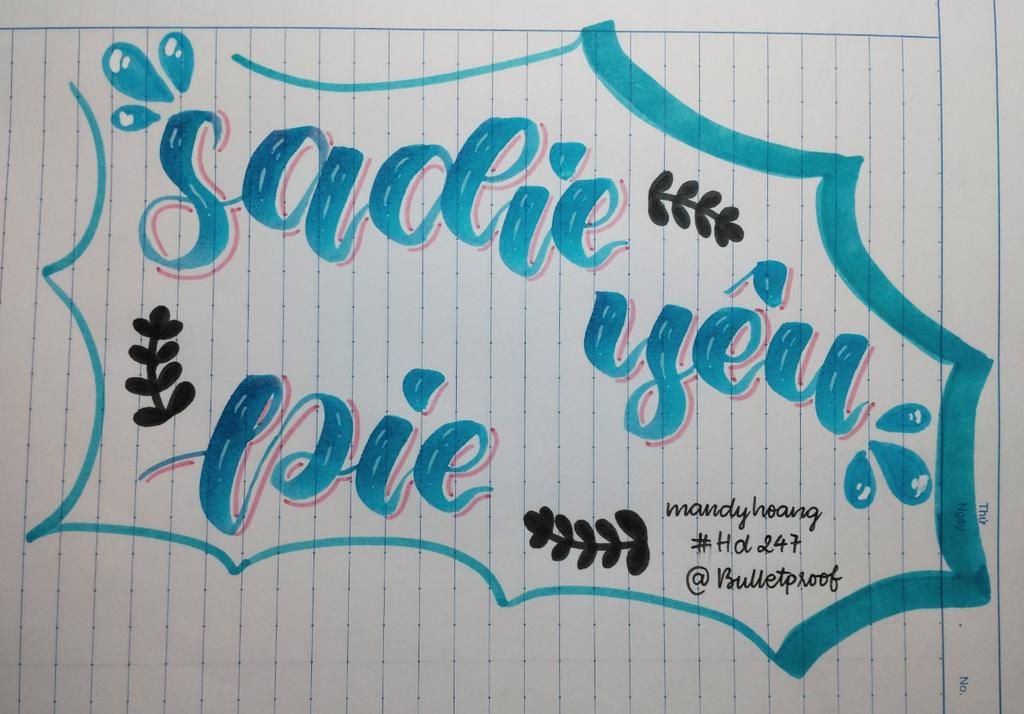 sadie
yêu
pie
mandyhoang
#Hd247
@Bulletproof
Thứ
Ngày
No.